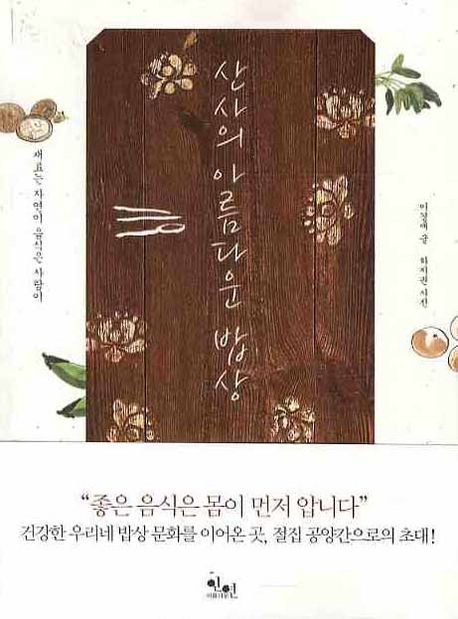 산사의 아름다운 밥상
재료는 자연이 음식은 사람이
이경애 글 하지권 사진
“좋은 음식은 몸이 먼저 압니다”
건강한 우리네 밥상 문화를 이어온 곳, 절집 공양간으로의 초대!
아름다운
인연